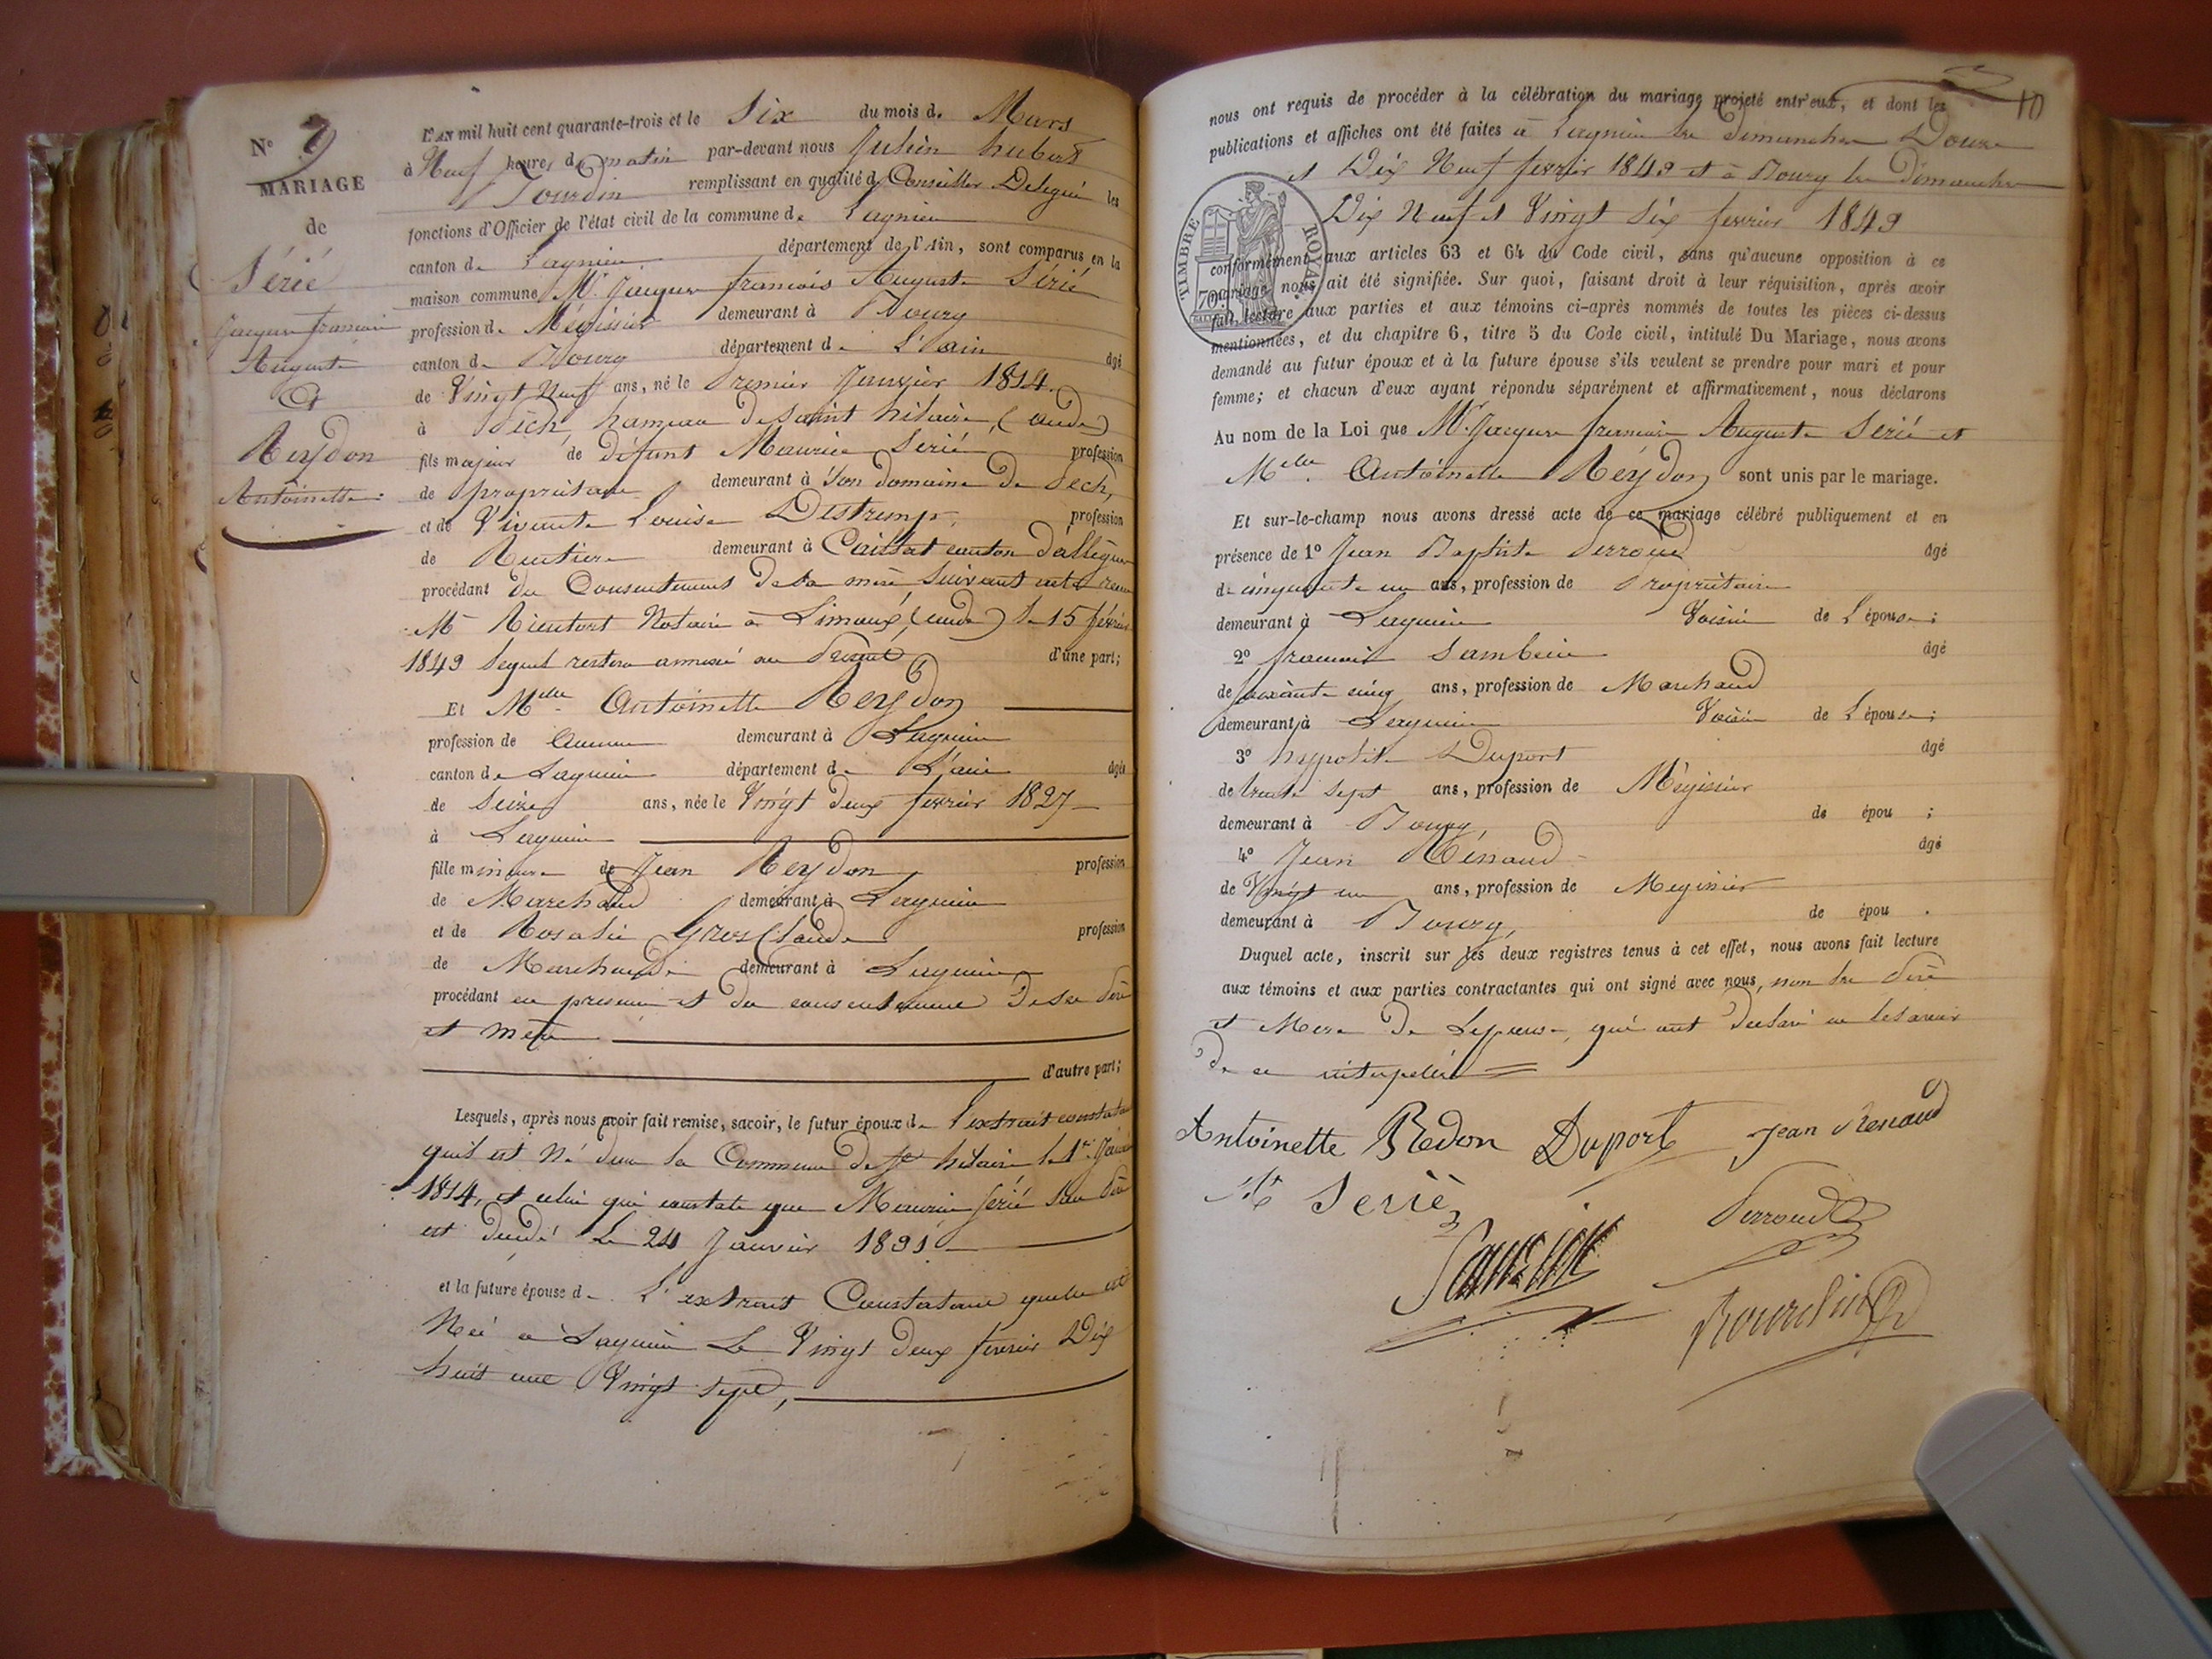 N° 9
MARIAGE
de
Sérié
Jacques françois
Auguste
Et
Reydon
Antoinette
L'AN mil huit cent quarante-trois et le Six du mois de Mars
à Neuf heures du matin par-devant nous Julien hubert
remplissant en qualité de Conseiller Delegué les
fonctions d'Officier de l'état civil de la commune de Lagnieu
canton de Lagnieu département de l'Ain, sont comparus en la
maison commune Mr. Jacques francois Auguste Sérié
profession de Mégissier demeurant à Bourg
canton de Bourg département de L'ain âgé
de Vingt Neuf ans, né le Premier Janvier 1814.
à Pech, hameau de saint hilaire, (aude)
fils majeur de défunt Maurice Serié profession
de propriétaire demeurant à Son domaine de Pech,
et de Vivente Louise Destremp, profession
de Rentiere demeurant à canton
procédant du Consentement de sa mère suivant acte recu
Me Rieutort Notaire à Limoux, (aude) le 15 février
1843 lequel restera annexé au Present d'une part;
Et Melle Antoinette Reydon
profession de Aucune demeurant à Lagnieu
canton de Lagnieu département de L'ain âgée
de Seize ans, née le Vingt deux fevrier 1827
à Lagnieu
fille mineure de Jean Reydon profession
de Marchand demeurant à Lagnieu
et de Rosalie Gros Claude profession
de Marchande demeurant à Lagnieu
procédant en presence et du consentement de ses Père
et mere
d'autre part;
Lesquels, après nous avoir fait remise, savoir, le futur époux de l'extrait constatant
quil est Né dans la Commune de St hilaire le 1er Janvier
1814, et celui qui constate que Maurice Serié son Père
est decedé Le 24 Janvier 1831
et la future épouse de L'extrait Constatant quelle est
Née à Lagnieu Le Vingt deux fevrier Dix
huit cent Vingt sept,
10
nous ont requis de procéder à la célébration du mariage projeté entr'eux, et dont les
publications et affiches ont été faites à Lagnieu les dimanches Douze
et Dix Neuf fevrier 1843 et à Bourg les dimanches
Dix Neuf et Vingt Six fevrier 1843
TIMBRE ROYAL
70
conformément aux articles 63 et 64 du Code civil, sans qu'aucune opposition à ce
mariage nous ait été signifiée. Sur quoi, faisant droit à leur réquisition, après avoir
fait lecture aux parties et aux témoins ci-après nommés de toutes les pièces ci-dessus
mentionnées, et du chapitre 6, titre 5 du Code civil, intitulé Du Mariage, nous avons
demandé au futur époux et à la future épouse s'ils veulent se prendre pour mari et pour
femme; et chacun d'eux ayant répondu séparément et affirmativement, nous déclarons
Au nom de la Loi que Mr. Jacques francois Auguste Serié et
Melle. Antoinette Reydon sont unis par le mariage.
Et sur-le-champ nous avons dressé acte de ce mariage célébré publiquement et en
présence de 1° Jean Baptiste Perroud âgé
de cinquante un ans, profession de Propriétaire
demeurant à Lagnieu Voisin de L'épouse;
2° francois Sambein âgé
de soixante cinq ans, profession de Marchand
demeurant à Lagnieu Voisin de L'épouse;
3° hypolite Duport âgé
de trente sept ans, profession de Mégissier
demeurant à Bourg de épou ;
4° Jean Rénaud âgé
de Vingt un ans, profession de Megissier
demeurant à Bourg, de épou .
Duquel acte, inscrit sur les deux registres tenus à cet effet, nous avons fait lecture
aux témoins et aux parties contractantes qui ont signé avec nous, non les Père
et Mere de Lepouse, qui ont declaré ne le savoir
de ce interpellés
Antoinette Redon Duport Jean Renaud
Serié
Perroud